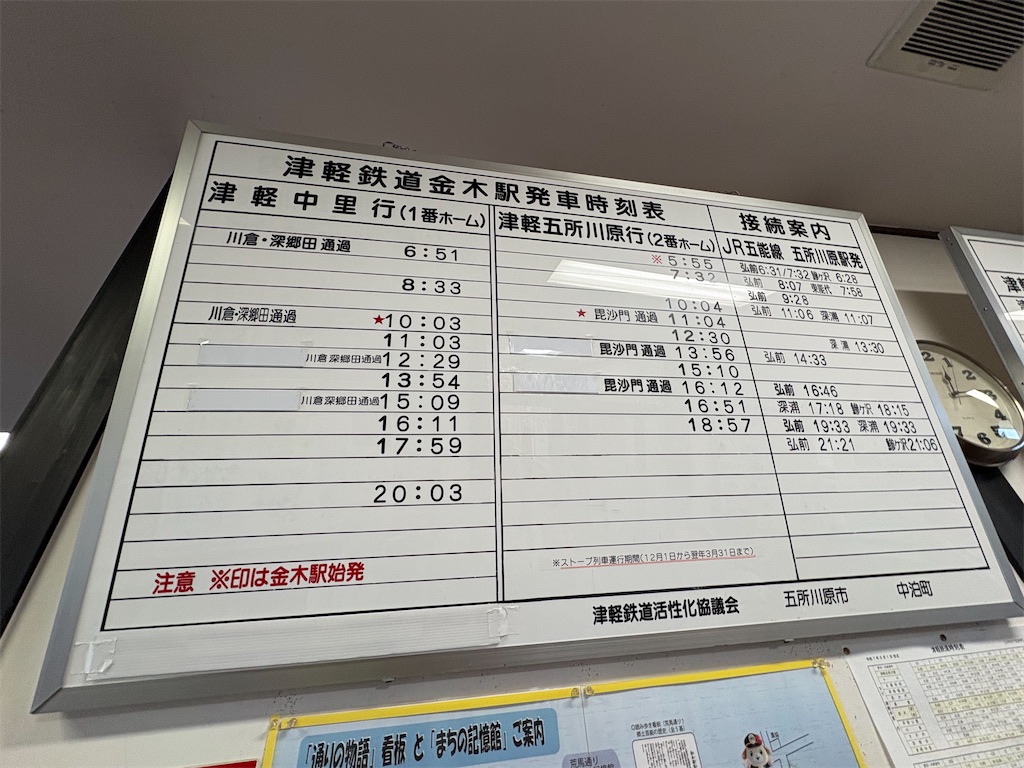 津軽鉄道金木駅発車時刻表
接続案内
津軽中里行(1番ホーム)
津軽五所川原行(2番ホーム)
JR五能線 五所川原駅発
川倉・深郷田 通過 6:51
8:33
川倉・深郷田通過 ★10:03
11:03
川倉深郷田通過12:29
13:54
川倉深郷田通過15:09
16:11
17:59
20:03
※5:55
7:32
10:04
★毘沙門 通過 11:04
12:30
毘沙門 通過 13:56
15:10
毘沙門 通過 16:12
16:51
18:57
弘前6:31/7:32 鰺ケ沢 6:28
弘前 8:07 東能代 7:58
弘前 9:28
弘前 11:06 深浦 11:07
深浦 13:30
弘前 14:33
弘前 16:46
深浦 17:18 鰺ケ沢 18:15
弘前 19:33 深浦 19:33
弘前 21:21 鰺ケ沢21:06
注意 ※印は金木駅始発
※ストーブ列車運行期間(12月1日から翌年3月31日まで)
津軽鉄道活性化協議会 五所川原市 中泊町
「通りの物語」看板 と「まちの記憶館」ご案内
荒馬通り
津軽